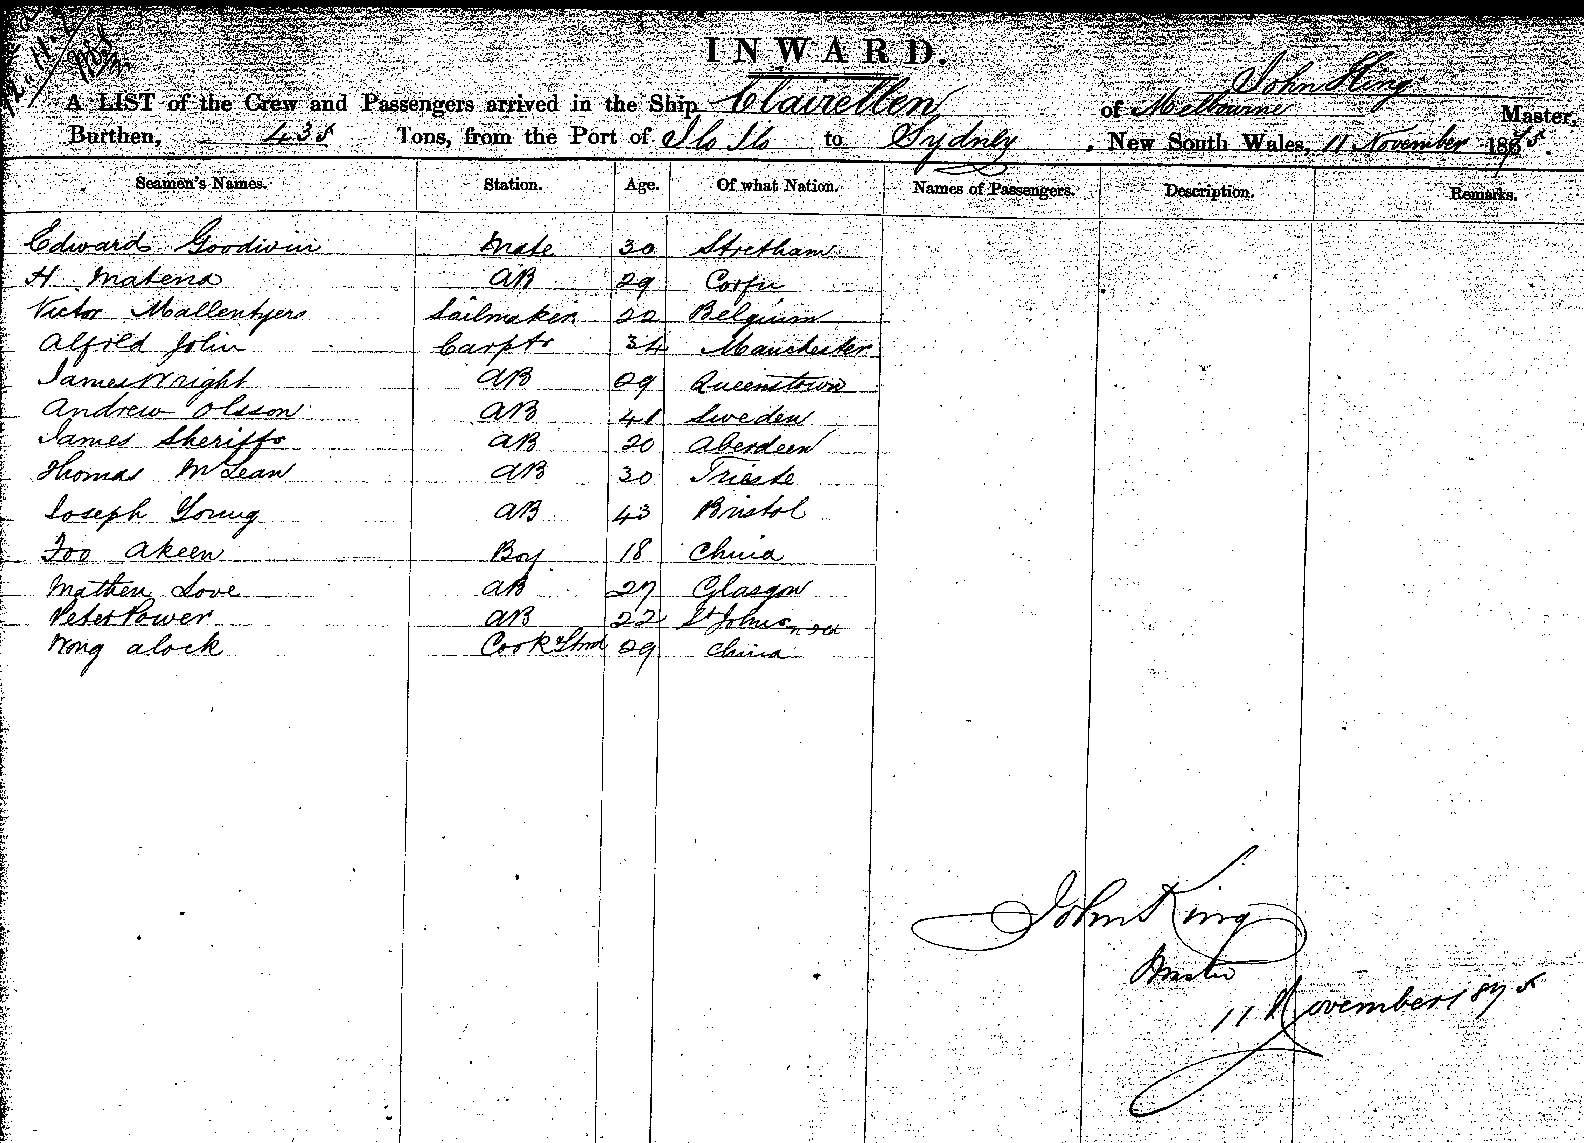 INWARD.
John King
A LIST of the Crew and Passengers arrived in the Ship Clairellen of Melbourne Master,
Burthen, 435 Tons, from the Port of Ilo Ilo to Sydney, New South Wales, 11 November 1875.
Seamen's Names. Station. Age. Of what Nation. Names of Passengers. Description. Remarks.
Edward Goodwin Mate 30 Stretham
H Matena AB 29 Corfu
Victor Mallentyers Sailmaker 20 Belgium
Alfred John Carptr 34 Manchester
James Wright AB 29 Queenstown
Andrew Olsson AB 41 Sweden
James Sheriffs AB 20 Aberdeen
Thomas McLean AB 30 Trieste
Joseph Young AB 43 Bristol
Foo Akeen Boy 18 China
Mathew Love AB 27 Glasgow
Peter Power AB 22 St Johns
Wong alock Cook & Stwd 29 China
John King
Master
11 November 1875